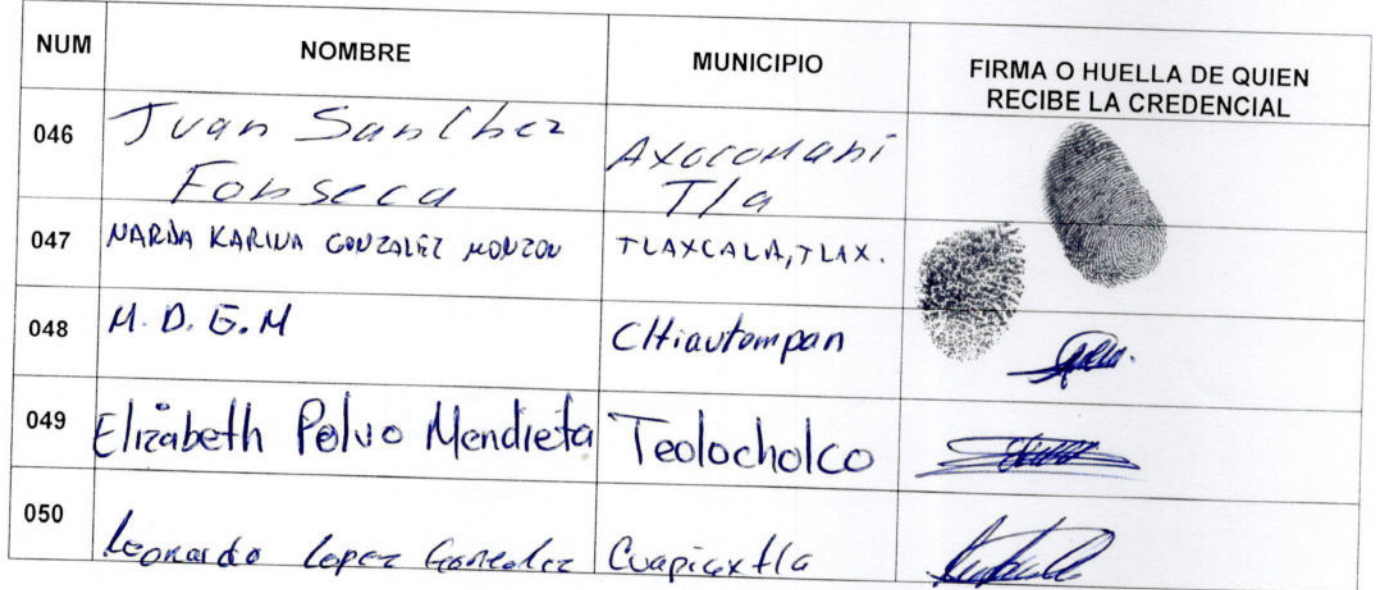 NUM NOMBRE MUNICIPIO FIRMA O HUELLA DE QUIEN
RECIBE LA CREDENCIAL
046 Juan Sanchez Axocomani
Fonseca Tla
047 NARDA KARINA GONZALEZ MONZON TLAXCALA, TLAX.
048 M. D. E. M Chiautempan
049 Elizabeth Polvo Mendieta Teolocholco
050 Leonardo Lopez Gonzalez Cuapiaxtla